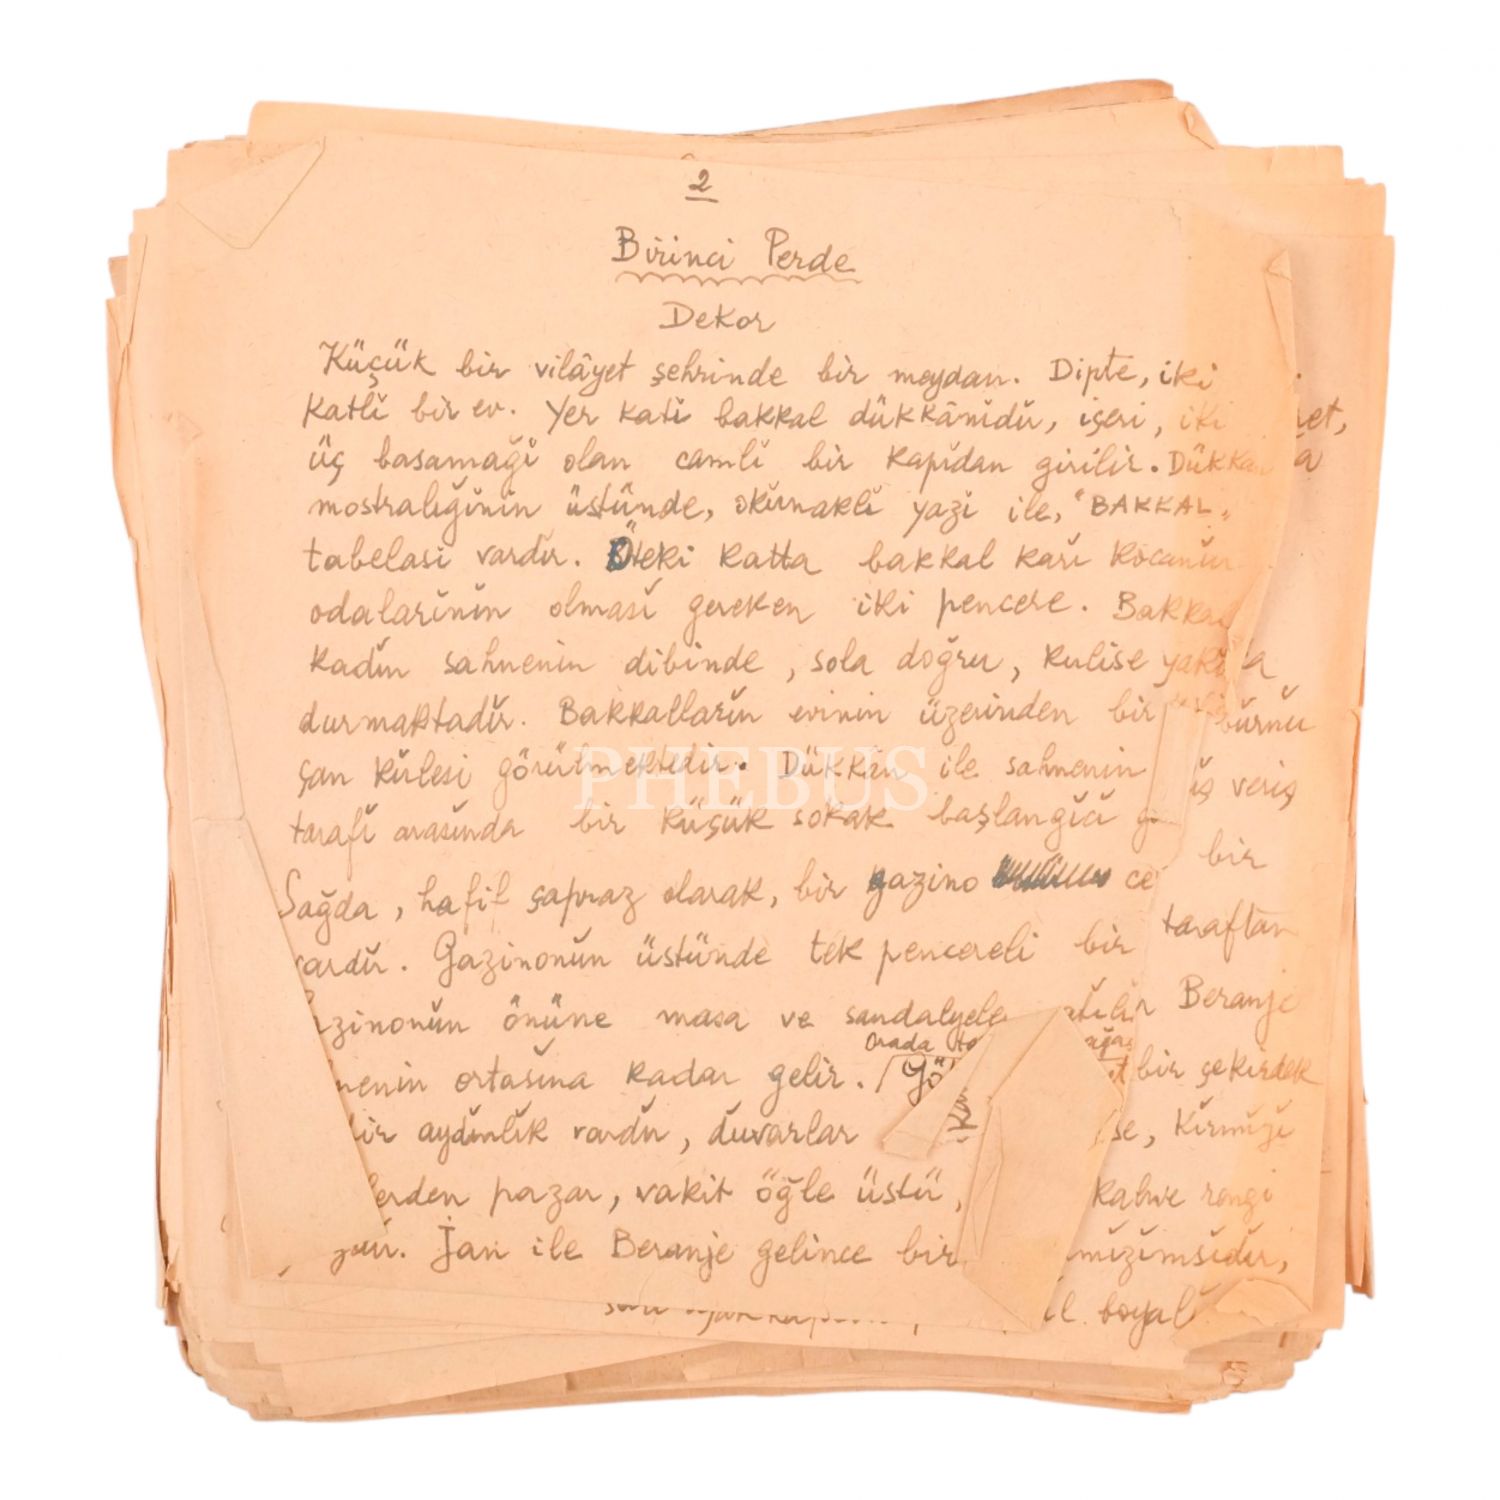 2
Birinci Perde
Dekor
Küçük bir vilâyet şehrinde bir meydan. Dipte, iki
katlı bir ev. Yer katı bakkal dükkânıdır, içeri, iki
üç basamağı olan camlı bir kapıdan girilir. Dükkân
mostralığının üstünde, okunaklı yazı ile, "BAKKAL„
tabelası vardır. Öteki katta bakkal karı kocanın
odalarının olması gereken iki pencere. Bakkal
kadın sahnenin dibinde, sola doğru, kulise yakın
durmaktadır. Bakkalların evinin üzerinden bir
çan kulesi görülmektedir. Dükkân ile sahnenin
tarafı arasında bir küçük sokak başlangıcı
Sağda, hafif çapraz olarak, bir gazino
vardır. Gazinonun üstünde tek pencereli bir
gazinonun önüne masa ve sandalyeler
ortasına kadar gelir.
Orada
bir aydınlık vardır, duvarlar
pazar, vakit öğle üstü,
Jan ile Beranje gelince bir
burnu
iş veriş
bir
taraftan
Beranje
bir çekirdek
kırmızı
kahve rengi
boyalı
PHEBUS